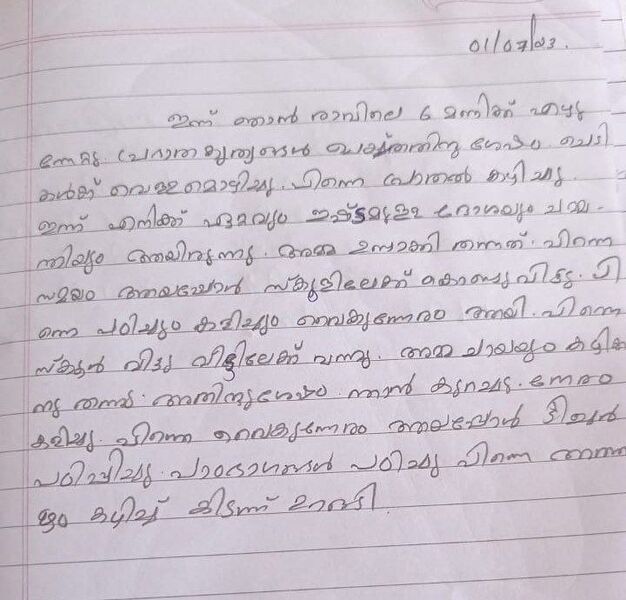 01/07/23.
ഇന്ന് ഞാൻ രാവിലെ 6 മണിക്ക് എഴു
ന്നേറ്റു. പ്രഭാത കൃത്യങ്ങൾ ചെയ്തതിനു ശേഷം ചെടി
കൾക്ക് വെള്ളമൊഴിച്ചു. പിന്നെ പ്രാതൽ കഴിച്ചു.
ഇന്ന് എനിക്ക് ഏറ്റവും ഇഷ്ടമുള്ള ദോശയും ചമ്മ-
ന്തിയും ആയിരുന്നു. അമ്മ ഉണ്ടാക്കി തന്നത്. പിന്നെ
സമയം ആയപ്പോൾ സ്കൂളിലേക്ക് കൊണ്ടുവിട്ടു. പി
ന്നെ പഠിച്ചും കളിച്ചും വൈകുന്നേരം ആയി. പിന്നെ
സ്കൂൾ വിട്ടു വീട്ടിലേക്ക് വന്നു. അമ്മ ചായയും കടിക
നു തന്നു. അതിനുശേഷം ഞാൻ കുറച്ചു നേരം
കളിച്ചു. പിന്നെ വൈകുന്നേരം ആയപ്പോൾ ടീച്ചർ
പഠിപ്പിച്ചു. പാഠഭാഗങ്ങൾ പഠിച്ചു പിന്നെ അത്താ
ഴം കഴിച്ച് കിടന്ന് ഉറങ്ങി.